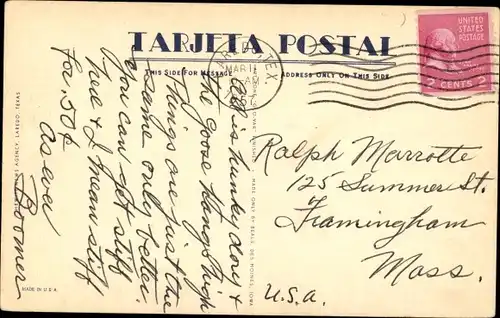 TARJETA POSTAL
THIS SIDE FOR MESSAGE
ADDRESS ONLY ON THIS SIDE
LAREDO, TEX.
MAR 11
UNITED
STATES
POSTAGE
2 CENTS 2
All is hunky dory &
the goose hangs high
Things are just the
same only better.
You can get stiff
here & I mean stiff
for .50¢
As ever
Boomer
Ralph Marrotte
125 Summer St.
Framingham
Mass.
U.S.A.
AGENCY, LAREDO, TEXAS
MADE ONLY BY BEALS, DES MOINES, IOWA
MADE IN U.S.A.